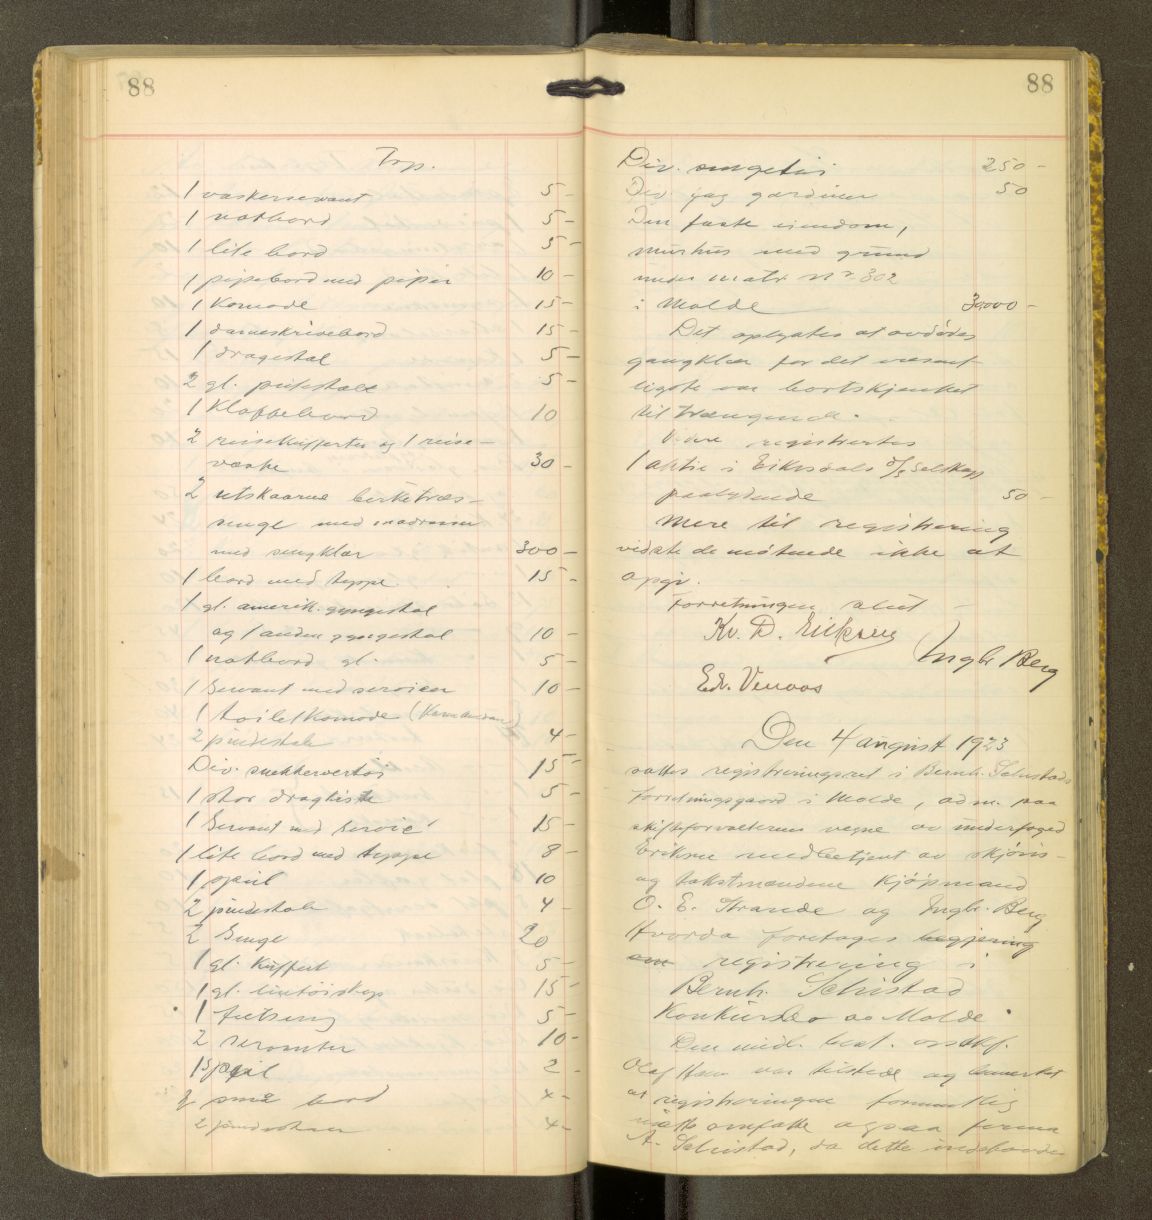 88
Trp.
1 vaskerservant 5-
1 natbord 5-
1 lite bord 5-
1 pipebord med piper 10-
1 Komode 15-
1 dameskrivebord 15-
1 dragestol 5-
2 gl. pindestole 5-
1 Klaffebord 10
2 reisekufferter og 1 reise-
væske 30-
2 utskaarne birketræs-
senge med madrasser
med sengklær 300-
1 bord med teppe 15-
1 gl. amerik. gyngestol
og 1 anden gyngestol 10-
1 natbord gl. 5-
1 Servant med servicer 10-
1 toiletkomode
2 pindestole 4-
Div. snekkervertøi 15-
1 stor dragkiste 5-
1 Servant med service 15-
1 lite bord med teppe 8-
1 speil 10
2 pindestole 4-
2 Senge 20
1 gl. Kuffert 5-
1 gl. lintøiskap 15-
1 feltseng 5-
2 servanter 10-
1 speil 2-
små bord 4-
2 pindestoler 4-
88
Div. sengetøi 250-
Div. gardiner 50
Den faste eiendom,
murhus med grund
under matr. nr 302
i Molde 30,000-
Det oplystes at avdødes
gangklær for det væsent-
ligste var bortskjenket
til trængende.
Videre registrertes
1 aktie i Eikesdals Selskap
paalydende 50-
Mere til registrering
vidste de møtende ikke at
opgi.
Forretningen slut -
Kr. D. Eriksen
Ingbr. Berg
Edv. Venaas
Den 4 august 1923
sattes registreringsret i Bernh. Selvstads
forretningsgaard i Molde, adm. paa
skifteforvalterens vegne av underfoged
Eriksen med betjent av skjøns-
og takstmændene Kjøpmand
O. E. Strande og Ingbr. Berg
Hvorda foretages begjæring
om registrering i
Bernh. Selvstad
Konkursbo av Molde.
Den midl. best.
Olaf var tilstede og bemerket
at registreringen formentlig
maatte omfatte ogsaa firma
A. Selvstad, da dette indehaves